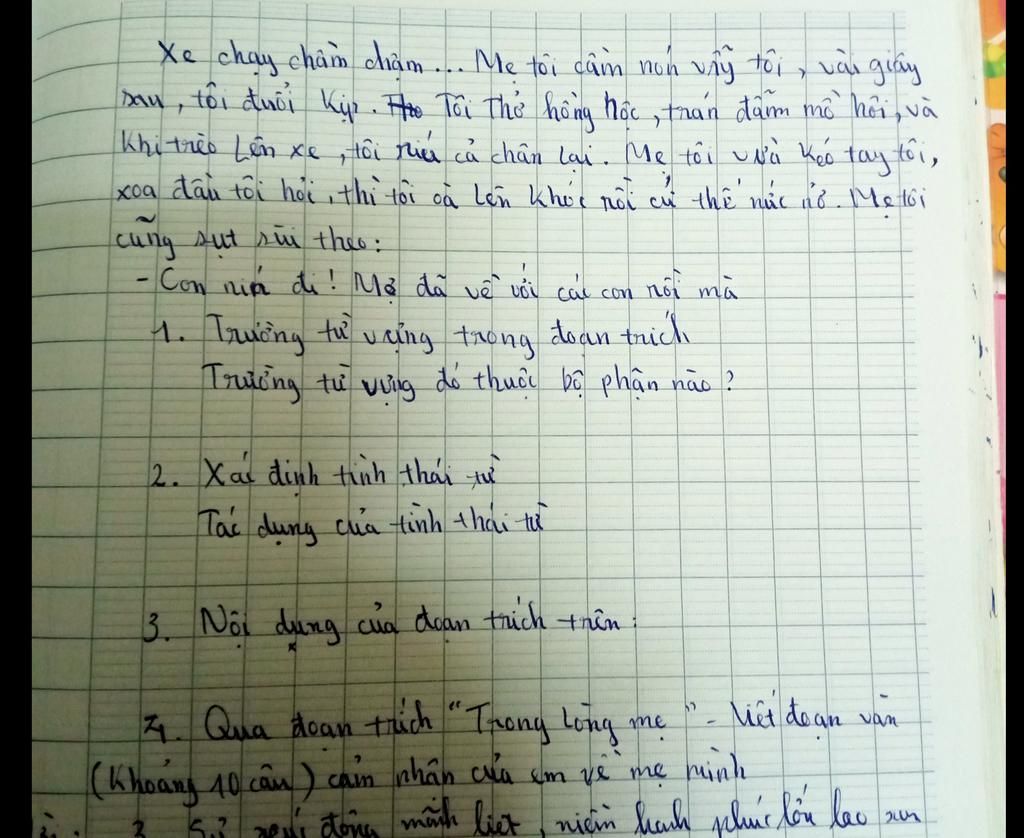 Xe chạy chầm chậm... Mẹ tôi cầm nón vẫy tôi, vài giây
sau, tôi đuổi kịp. Tôi thở hồng hộc, trán đẫm mồ hôi, và
khi trèo lên xe, tôi ríu cả chân lại. Mẹ tôi vừa kéo tay tôi,
xoa đầu tôi hỏi, thì tôi oà lên khóc rồi cứ thế nức nở. Mẹ tôi
cũng sụt sùi theo:
- Con nín đi! Mợ đã về với các con rồi mà
1. Trường từ vựng trong đoạn trích
Trường từ vựng đó thuộc bộ phận nào?
2. Xác định tình thái từ
Tác dụng của tình thái từ
3. Nội dụng của đoạn trích trên:
4. Qua đoạn trích "Trong lòng mẹ" - Viết đoạn văn
(khoảng 10 câu) cảm nhận của em về mẹ mình
động mãnh liệt, niềm hạnh phúc lớn lao